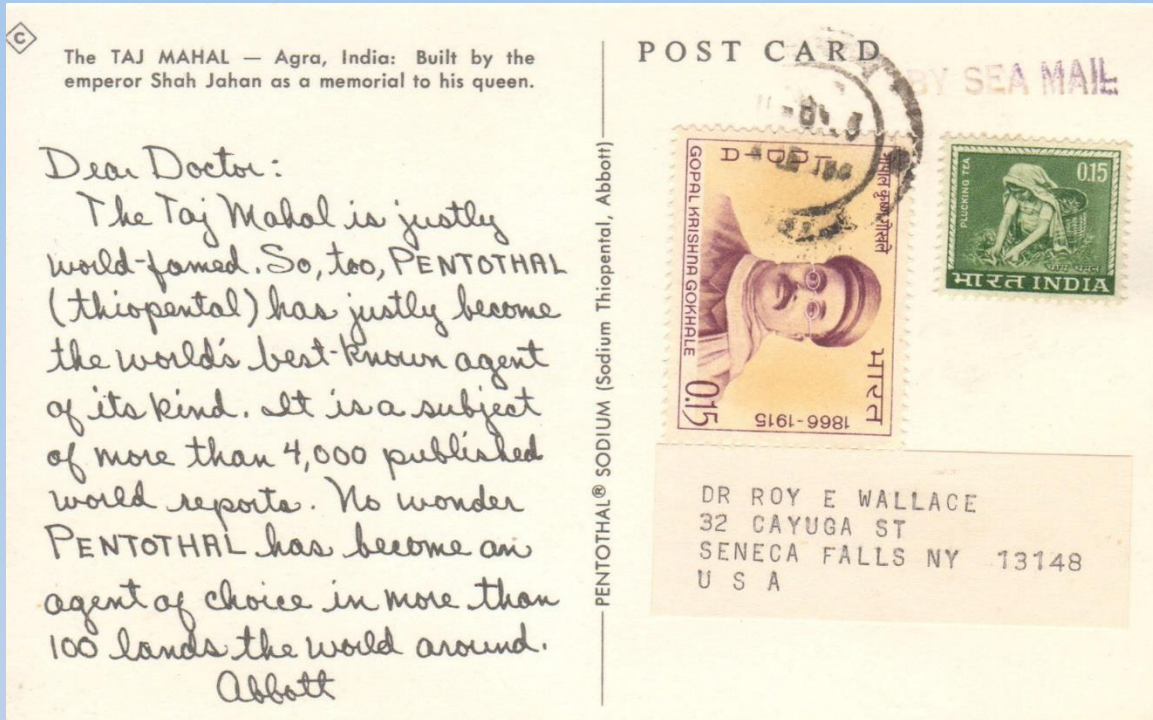 C
The TAJ MAHAL — Agra, India: Built by the
emperor Shah Jahan as a memorial to his queen.
Dear Doctor:
The Taj Mahal is justly
world-famed. So, too, PENTOTHAL
(thiopental) has justly become
the world's best-known agent
of its kind. It is a subject
of more than 4,000 published
world reports. No wonder
PENTOTHAL has become an
agent of choice in more than
100 lands the world around.
Abbott
PENTOTHAL® SODIUM (Sodium Thiopental, Abbott)
POST CARD
BY SEA MAIL
GOPAL KRISHNA GOKHALE
0.15
1866-1915
भारत
PLUCKING TEA
0.15
भारत INDIA
DR ROY E WALLACE
32 CAYUGA ST
SENECA FALLS NY 13148
U S A